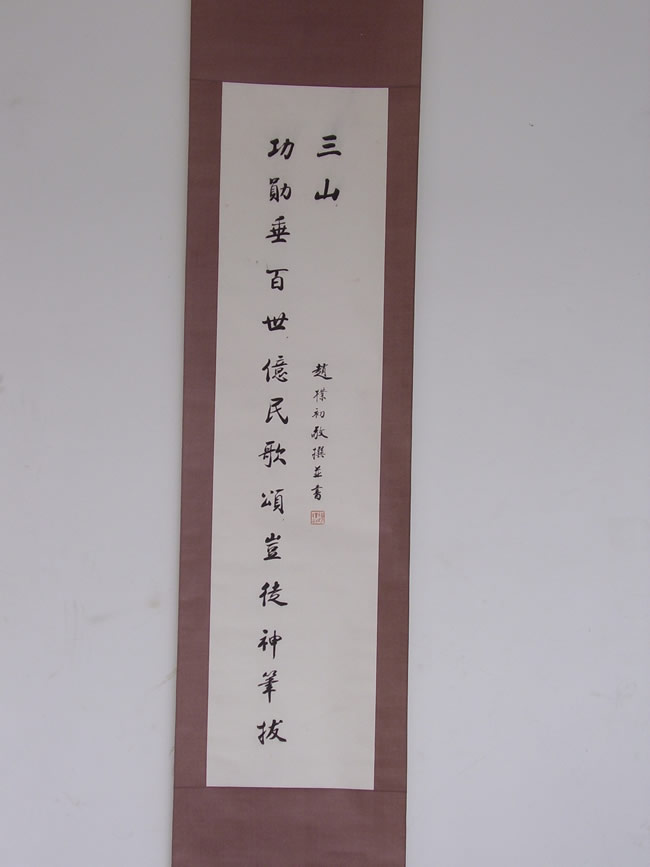 功勛垂百世億民歌頌豈徒神筆拔
三山
趙樸初敬撰並書